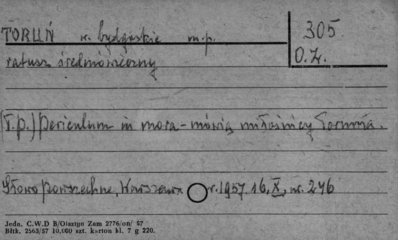 TORUŃ w. bydgoskie m.p.
305
ratusz średniowieczny
O.Z.
(T.p.) Periculum in mora - mówią miłośnicy Torunia.
Słowo powszechne, Warszawa r. 1957 16. X, nr. 246
Jedn. C.W.D B/Olsztyn Zam 2776/an/ 57
Bltk. 2563/57 10,000 szt. karton kl. 7 g 220.